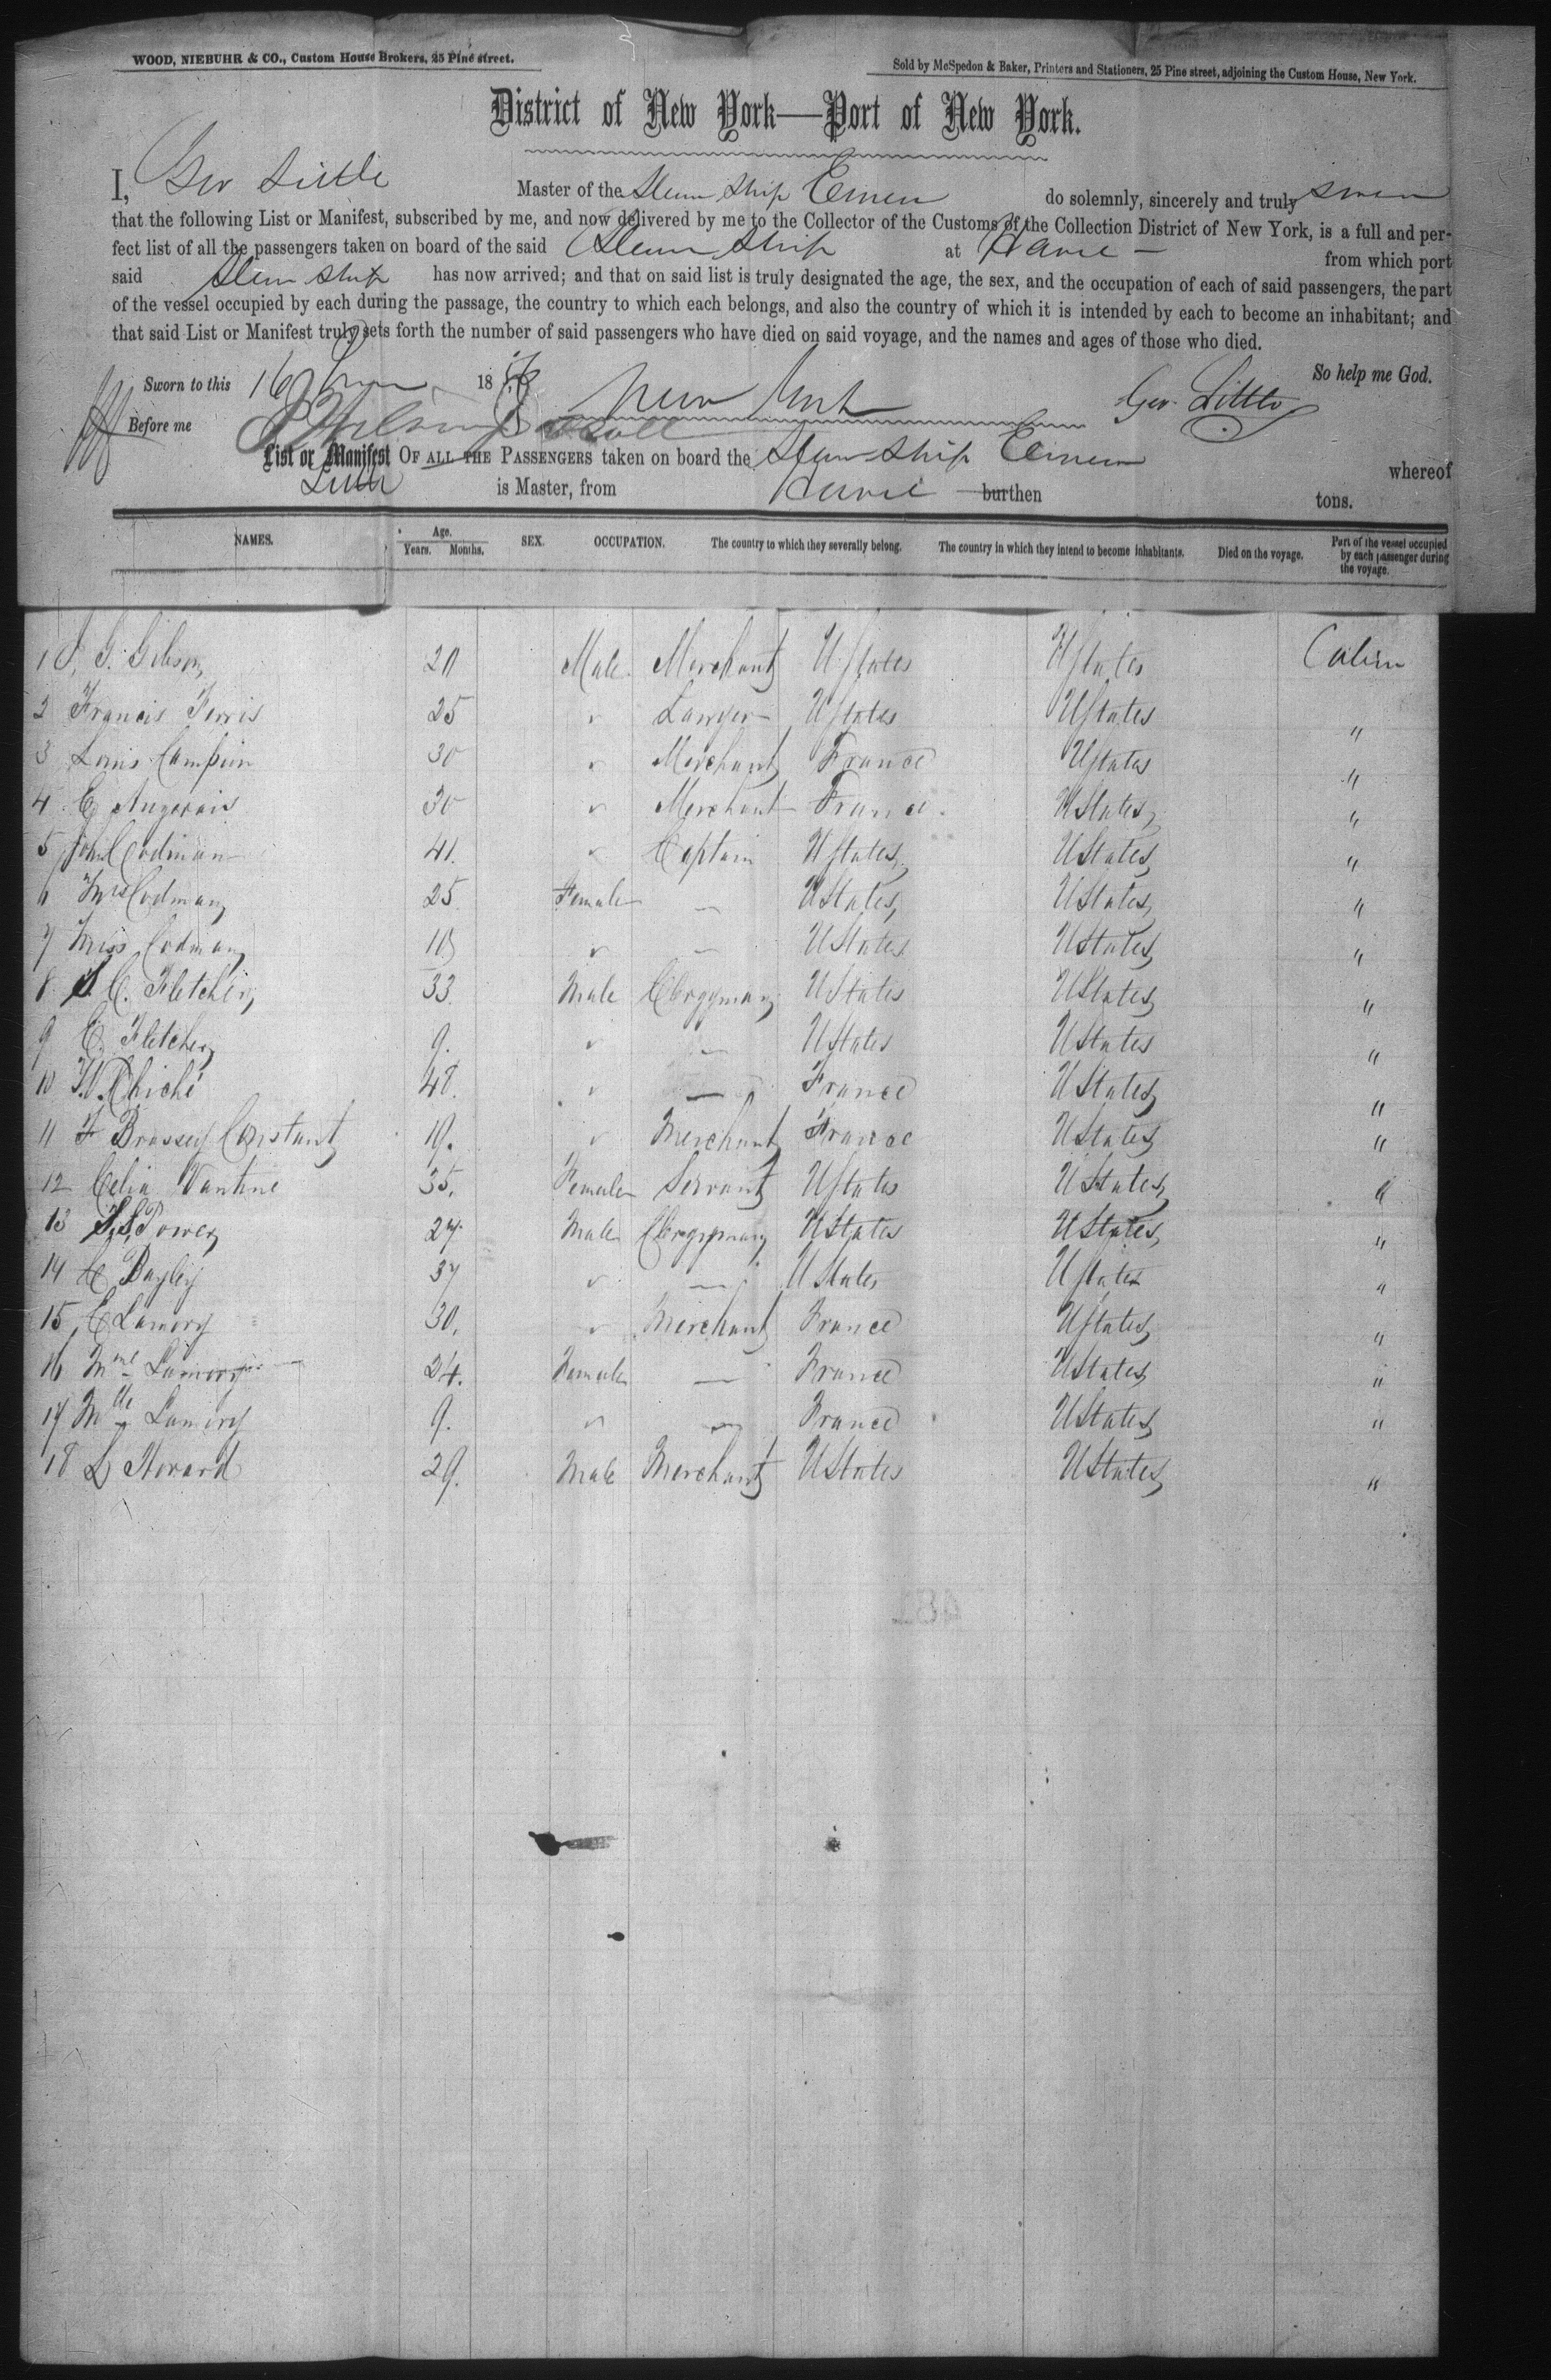 WOOD, NIEBUHR & CO., Custom House Brokers, 25 Pine street.
Sold by McSpedon & Baker, Printers and Stationers, 25 Pine street, adjoining the Custom House, New York.
District of New York—Port of New York.
I, Geo Little Master of the Steam Ship do solemnly, sincerely and truly swear
that the following List or Manifest, subscribed by me, and now delivered by me to the Collector of the Customs of the Collection District of New York, is a full and per-
fect list of all the passengers taken on board of the said Steam Ship at Havre — from which port
said Steam Ship has now arrived; and that on said list is truly designated the age, the sex, and the occupation of each of said passengers, the part
of the vessel occupied by each during the passage, the country to which each belongs, and also the country of which it is intended by each to become an inhabitant; and
that said List or Manifest truly sets forth the number of said passengers who have died on said voyage, and the names and ages of those who died.
So help me God.
Sworn to this 16 18 New York Geo. Little
Before me
List or Manifest OF ALL THE PASSENGERS taken on board the Steam Ship whereof
Little is Master, from Havre burthen tons.
NAMES. Age. Years. Months. SEX. OCCUPATION. The country to which they severally belong. The country in which they intend to become inhabitants. Died on the voyage. Part of the vessel occupied by each passenger during the voyage.
1 J. G. Gibson 20 Male Merchant U States U States Cabin
2 Francis Ferris 25 " Lawyer U States U States "
3 Louis Campion 30 " Merchant France U States "
4 E 30 " Merchant France U States "
5 John Codman 41 " Captain U States U States "
6 Mrs Codman 25 Female — U States U States "
7 Miss Codman 10 " — U States U States "
8 J. C. Fletcher 33 Male Clergyman U States U States "
9 E. Fletcher 9. " — U States U States "
10 Chiché 48. " — France U States "
11 F Brossey Constant 19. " Merchant France U States "
12 Celia Vantine 35. Female Servant U States U States "
13 Power 27 Male Clergyman U States U States "
14 Bayley 37 " — U States U States "
15 E Lamory 30. " Merchant France U States "
16 Mme Lamory 24. Female — France U States "
17 Mlle Lamory 9. " — France U States "
18 L Howard 29. Male Merchant U States U States "